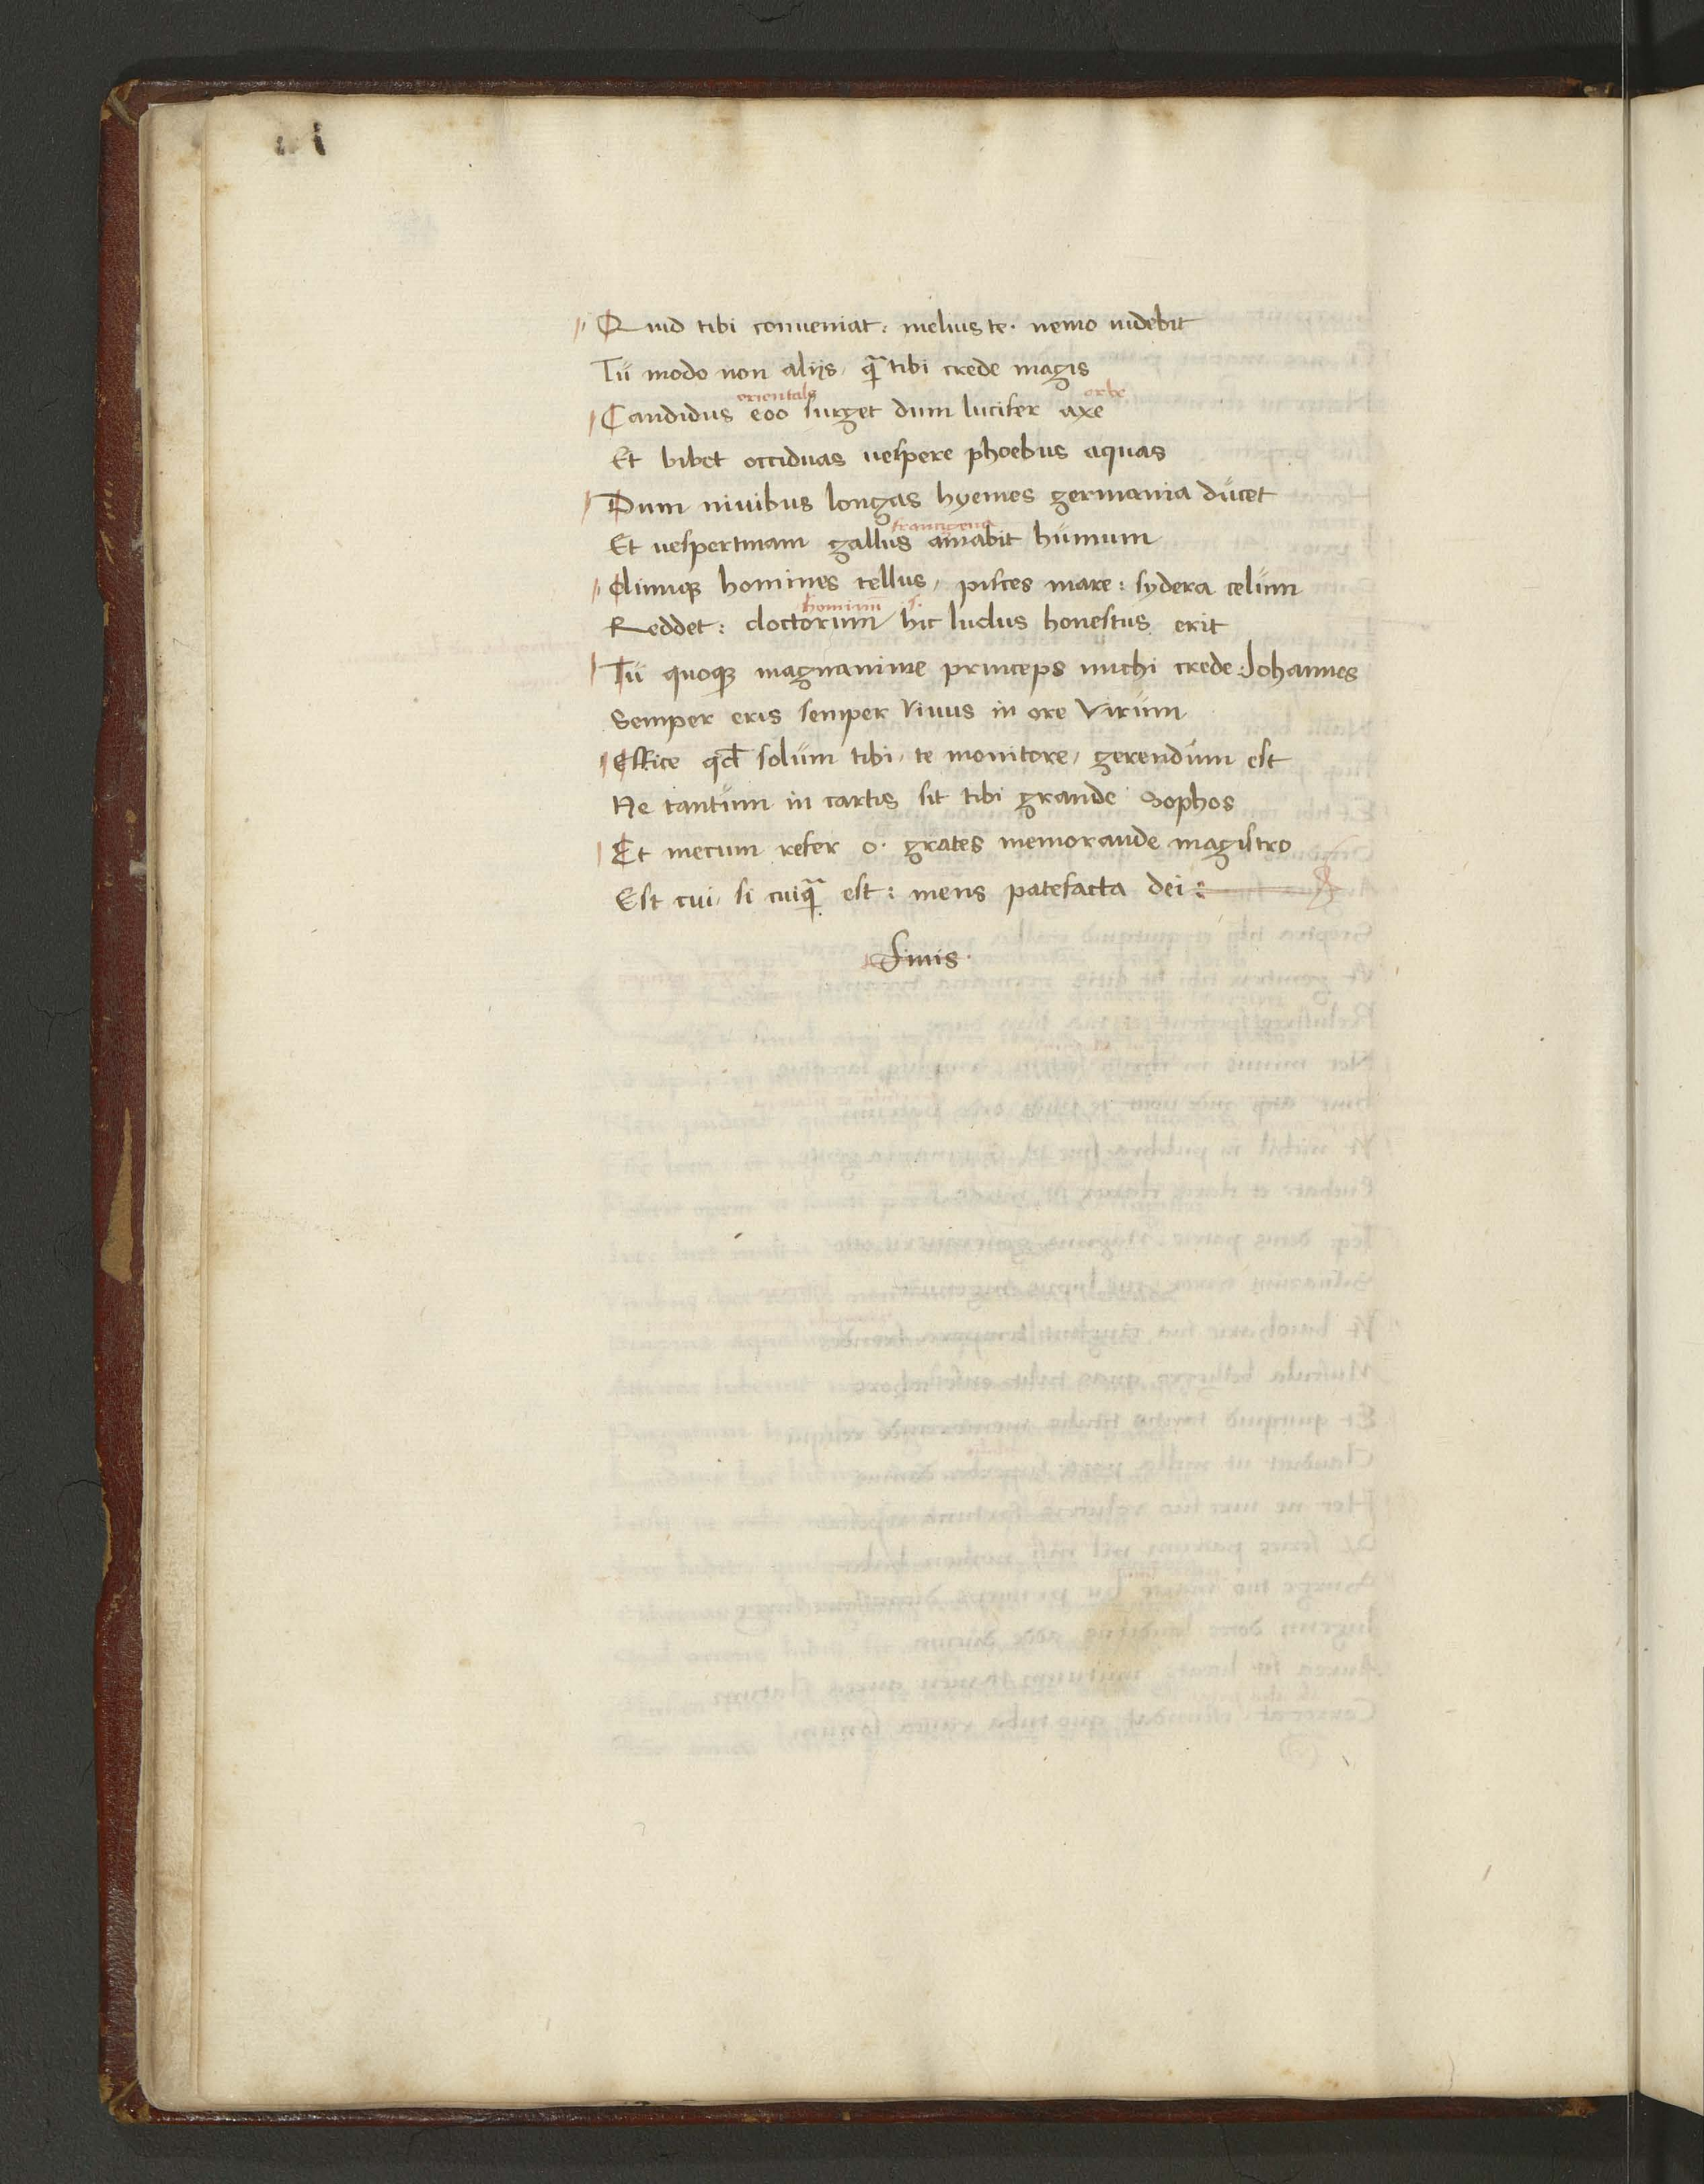 Quid tibi conueniat: melius te· nemo uidebit
Tŭ modo non aliis, qͣ tibi crede magis
orientale orbe
Candidus eoo surget dum lucifer axe
Et bibet occiduas uespere phoebus aquas
Dum niuibus longas hyemes germania dŭcet
francigena
Et uespertinam gallus amabit hŭmum
Dumqꝫ homines tellus, pisces mare: sydera celŭm
hominū s·
Reddet: doctorum hic ludus honestus erit
Tŭ quoqꝫ magnanime princeps michi crede Johannes
Semper eris semper Viuus in ore Virŭm
Effice qd̄ solŭm tibi, te monitore, gerendŭm est
Ne tantŭm in cartis sit tibi grande Sophos
Et mecum refer o· grates memorande magistro
Est cui, si cuiqͣ est: mens patefacta dei :
Finis·